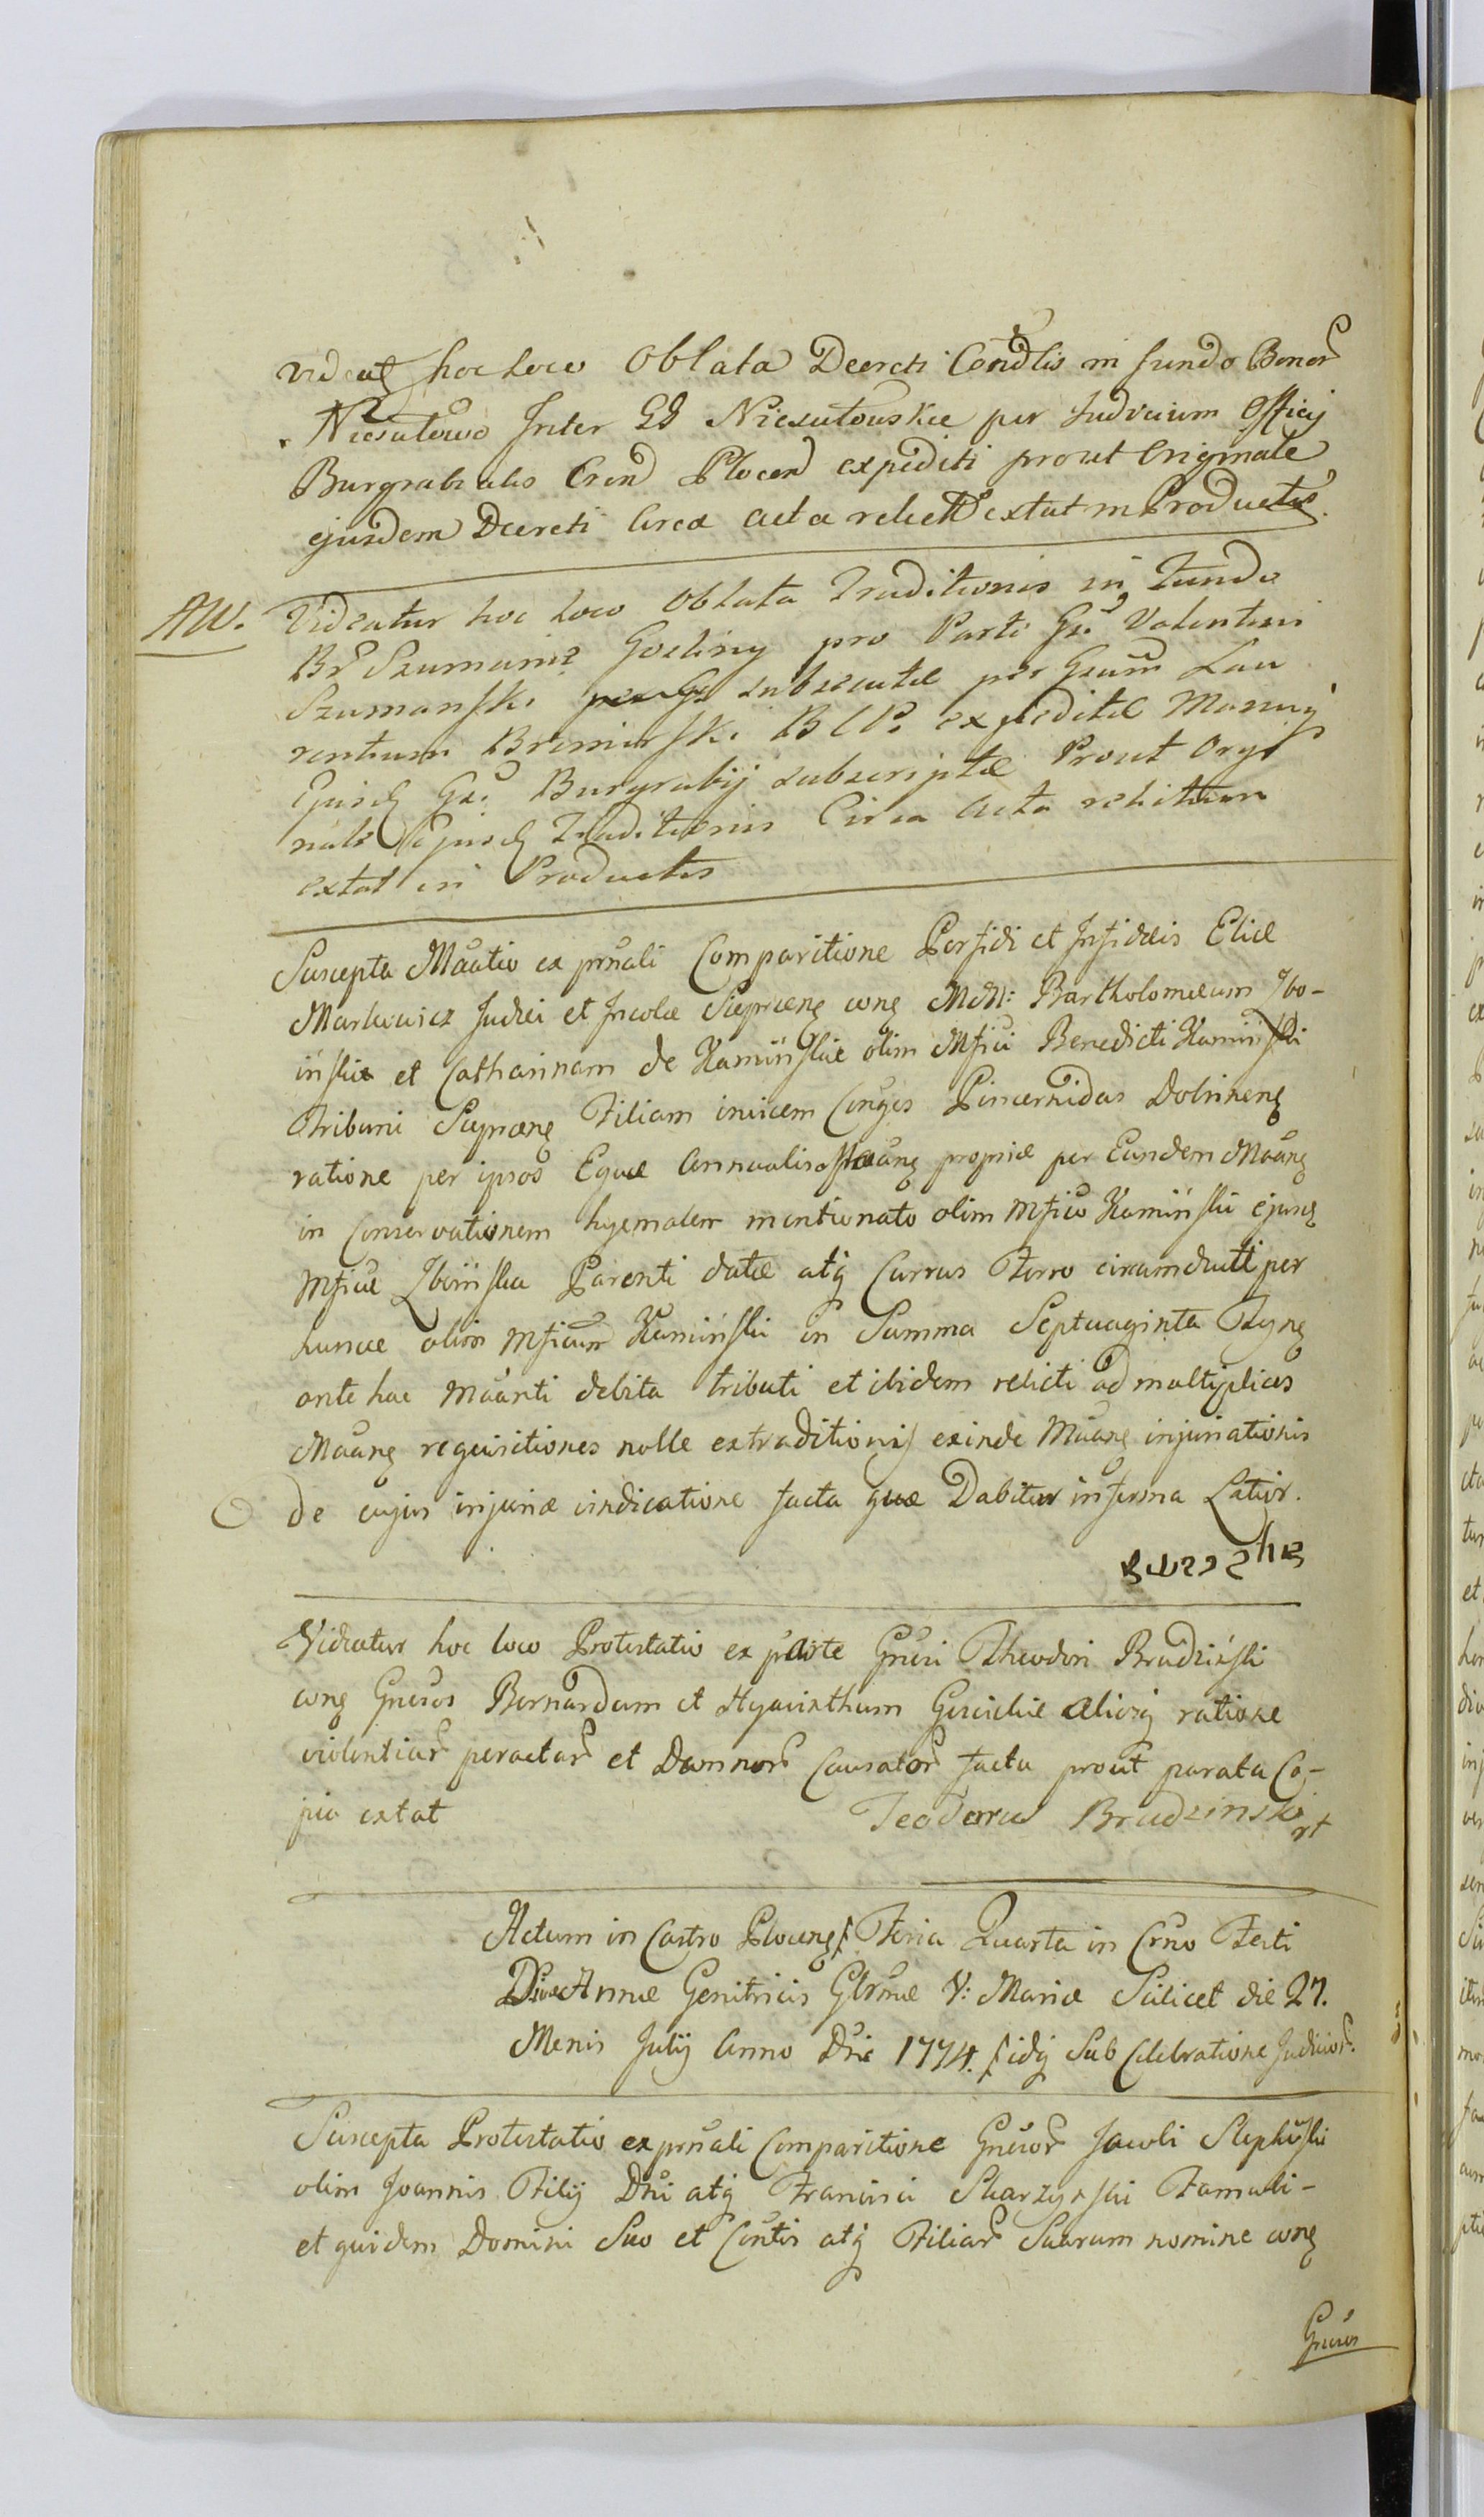 Videat hoc loco Oblata Decreti Condlis in fundo Bonor
Niesułowo Inter GG Niesułowskie per Judicium Officij
Burgrabialis Cren Plocen expediti prout Originale
ejusdem Decreti Circa acta relict extat in Productis.
AW. Videatur hoc loco Oblata Traditionis in Fundo
Br Szumanie Gosliny pro Parti Gr. Valentini
Szumanski per Gr subsecutæ per Grum Lau
rentium Bremirski B C P. expeditæ Manuq
Ejusd Gr. Burgrabij subscriptæ Prout Orygi
nale Ejusd Traditionis Circa Acta relictum
extat in Productis
Suscepta Mãatio ex prnãli Comparitione Perfidi et Infidelis Eliæ
Markowicz Judei et Incolæ Sieprceng cong MM: Bartholomæum Zbo-
iińskie et Catharinam de Kamiińskie olim Mfici Benedicti Kamiński
Tribuni Sieprceng Filiam invicem Conges Pincernidas Dobrineng
ratione per ipsos Equæ Annualis Mãang propriæ per Eundem Mãang
in Conservationem hyemalem mentionato olim Mfico Kamiński ejusd
Mficæ Zboińska Parenti datæ atq Currus Ferro circumducti per
eunde olim Mficum Kamiński in Summa Septuaginta Tyng
ante hac Mãanti debita tributi et ibidem relicti ad multiplices
Mãang requisitiones nolle extraditionis exinde Mãang injuriationis
De cujus injuriæ vindicatione facta quæ Dabitur in forma Latior.
Videatur hoc loco Protestatio ex parte Gnusi Theodori Brudziński
cong Gnusos Bernardum et Hyacinthum Gościckie aliosq ratione
violentiar peractar et Damnor Causator facta prout parata Co-
pia extat Teodorus Brudzinski
Actum in Castro Ploceng Feria Quarta in Crno Festi
Divæ Annæ Genitricis Glrmæ V: Mariæ Scilicet die 27.
Mensis Julij Anno Dni 1774. idq Sub Celebratione Judicior.
Suscepta Protestatio ex prnãli Comparitione Gnusor Jacobi
olim Joannis Filij Dni atq Francisci Skarzynski Famuli-
et quidem Domini Suo et Contis atq Filiar Suarum nomine cong
Gnusos